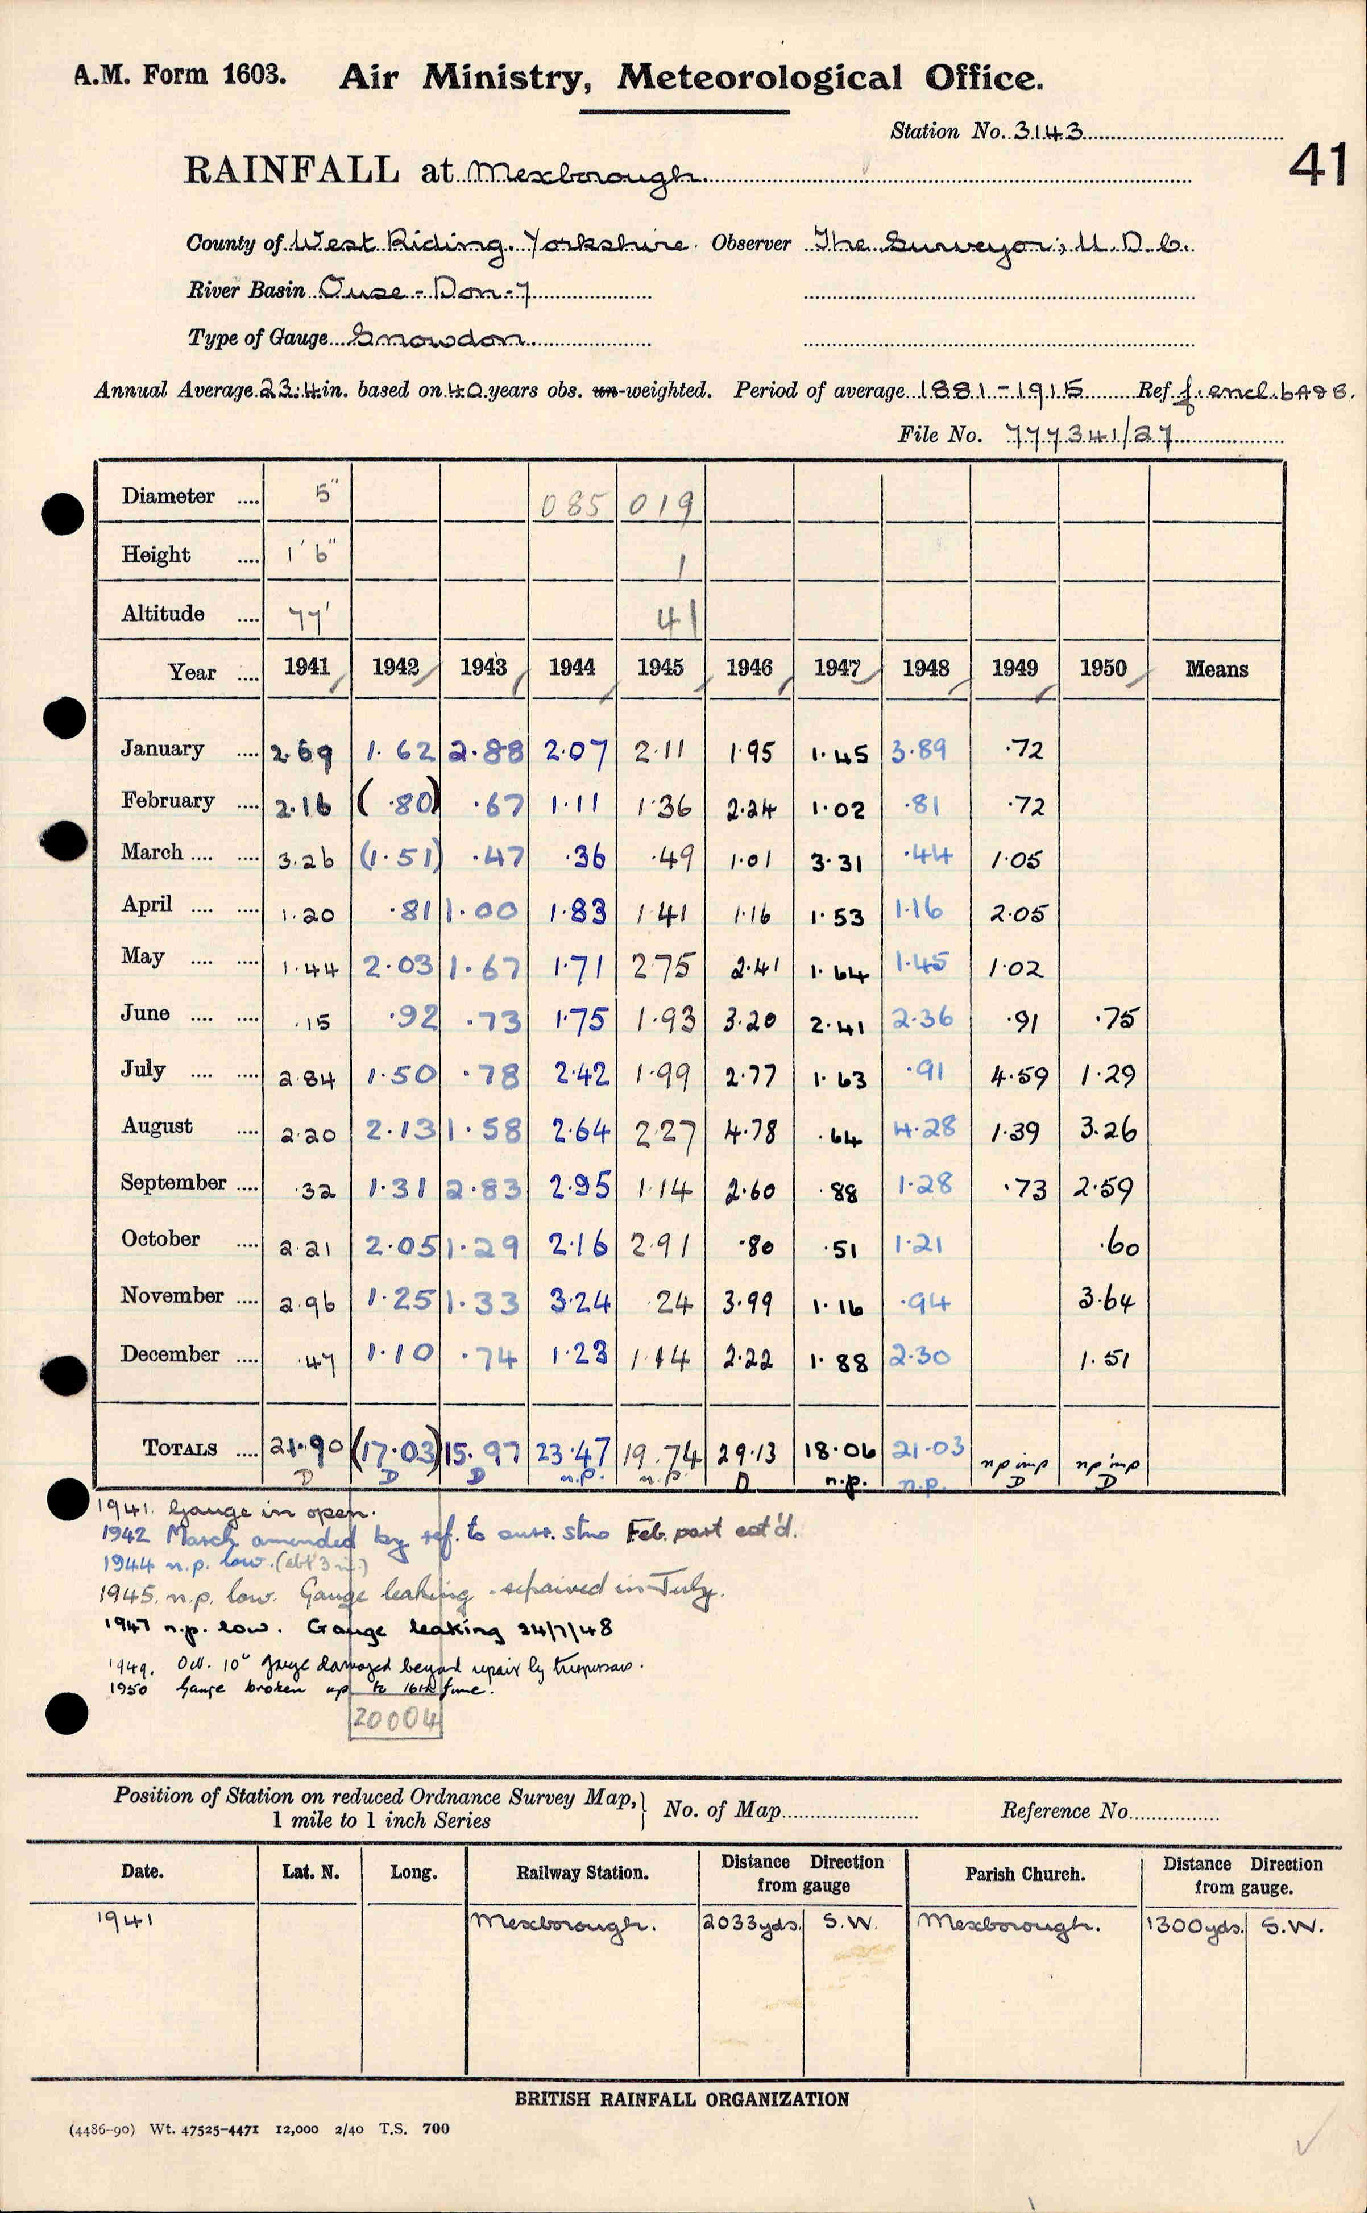 A.M. Form 1603. Air Ministry, Meteorological Office.
Station No. 3143
41
RAINFALL at Mexborough.
County of West Riding. Yorkshire. Observer The Surveyor, U.D.C.
River Basin Ouse - Don - 7
Type of Gauge Snowdon.
Annual Average 23.4 in. based on 40 years obs. un-weighted. Period of average 1881-1915 Ref f. encl.
File No. 777341/27
Diameter .... 5" 085 019
Height .... 1' 6" 1
Altitude .... 77' 41
Year .... 1941 1942 1943 1944 1945 1946 1947 1948 1949 1950 Means
January .... 2.69 1.62 2.88 2.07 2.11 1.95 1.45 3.89 .72
February .... 2.16 (.80) .67 1.11 1.36 2.24 1.02 .81 .72
March .... .... 3.26 (1.51) .47 .36 .49 1.01 3.31 .44 1.05
April .... .... 1.20 .81 1.00 1.83 1.41 1.16 1.53 1.16 2.05
May .... .... 1.44 2.03 1.67 1.71 2.75 2.41 1.64 1.45 1.02
June .... .... .15 .92 .73 1.75 1.93 3.20 2.41 2.36 .91 .75
July .... .... 2.84 1.50 .78 2.42 1.99 2.77 1.63 .91 4.59 1.29
August .... 2.20 2.13 1.58 2.64 2.27 4.78 .64 4.28 1.39 3.26
September .... .32 1.31 2.83 2.95 1.14 2.60 .88 1.28 .73 2.59
October .... 2.21 2.05 1.29 2.16 2.91 .80 .51 1.21 .60
November .... 2.96 1.25 1.33 3.24 .24 3.99 1.16 .94 3.64
December .... .47 1.10 .74 1.23 1.14 2.22 1.88 2.30 1.51
TOTALS .... 21.90 (17.03) 15.97 23.47 19.74 29.13 18.06 21.03 np imp np imp
D D D n.p. n.p. D n.p. n.p. D D
1941. Gauge in open.
1942 March amended by ref. to surr. stns Feb. part est'd.
1944 n.p. low. (abt 3 in.)
1945. n.p. low. Gauge leaking - repaired in July.
1947 n.p. low. Gauge leaking 24/7/48
1949. Oct. 10th gauge damaged beyond repair by trespassers.
1950 Gauge broken up to 16th June.
20004
Position of Station on reduced Ordnance Survey Map, 1 mile to 1 inch Series } No. of Map Reference No.
Date. Lat. N. Long. Railway Station. Distance Direction from gauge Parish Church. Distance Direction from gauge.
1941 Mexborough. 2033 yds. S.W. Mexborough. 1300 yds. S.W.
BRITISH RAINFALL ORGANIZATION
(4486-90) Wt. 47525-4471 12,000 2/40 T.S. 700